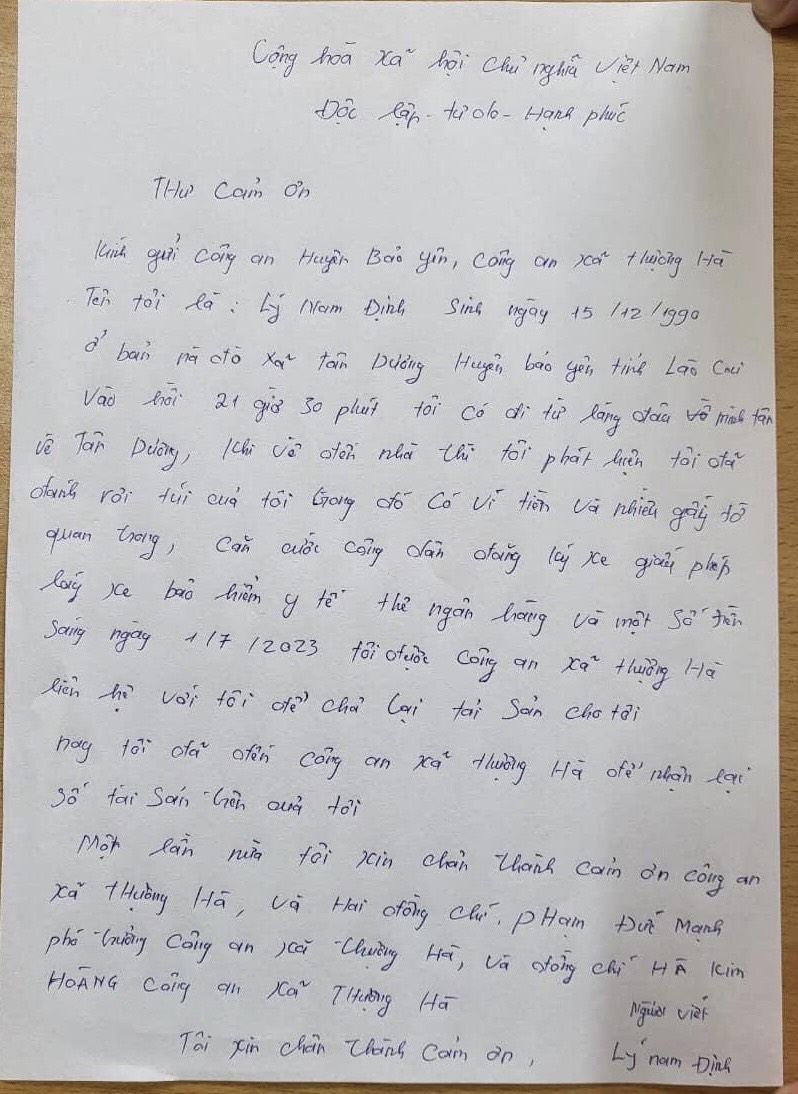 Cộng hoà xã hội chủ nghĩa Việt Nam
Độc lập - tự do - Hạnh phúc
THư cảm ơn
Kính gửi công an Huyện Bảo yên, công an xã thượng Hà
Tên tôi là : Lý Nam Định Sinh ngày 15/12/1990
ở bản nà đò xã tân Dương Huyện bảo yên tỉnh Lào Cai
Vào hồi 21 giờ 30 phút tôi có đi từ làng đầu võ minh tân
về Tân Dương, Khi về đến nhà thì tôi phát hiện tôi đã
đánh rơi túi của tôi trong đó có ví tiền và nhiều giấy tờ
quan trọng, căn cước công dân đăng ký xe giấy phép
láy xe bảo hiểm y tế thẻ ngân hàng và một số tiền
Sáng ngày 1/7/2023 tôi được công an xã thượng Hà
liên hệ với tôi để chả lại tài sản cho tôi
nay tôi đã đến công an xã thượng Hà để nhận lại
số tài sản trên của tôi
Một lần nữa tôi xin chân thành cảm ơn công an
xã tHượng Hà, và Hai đồng chí. pHạm Đức Mạnh
phó trưởng công an xã thượng Hà, và đồng chí HÀ Kim
HOÀNG công an xã THượng Hà
Người viết
Tôi xin chân thành cảm ơn, Lý nam Định